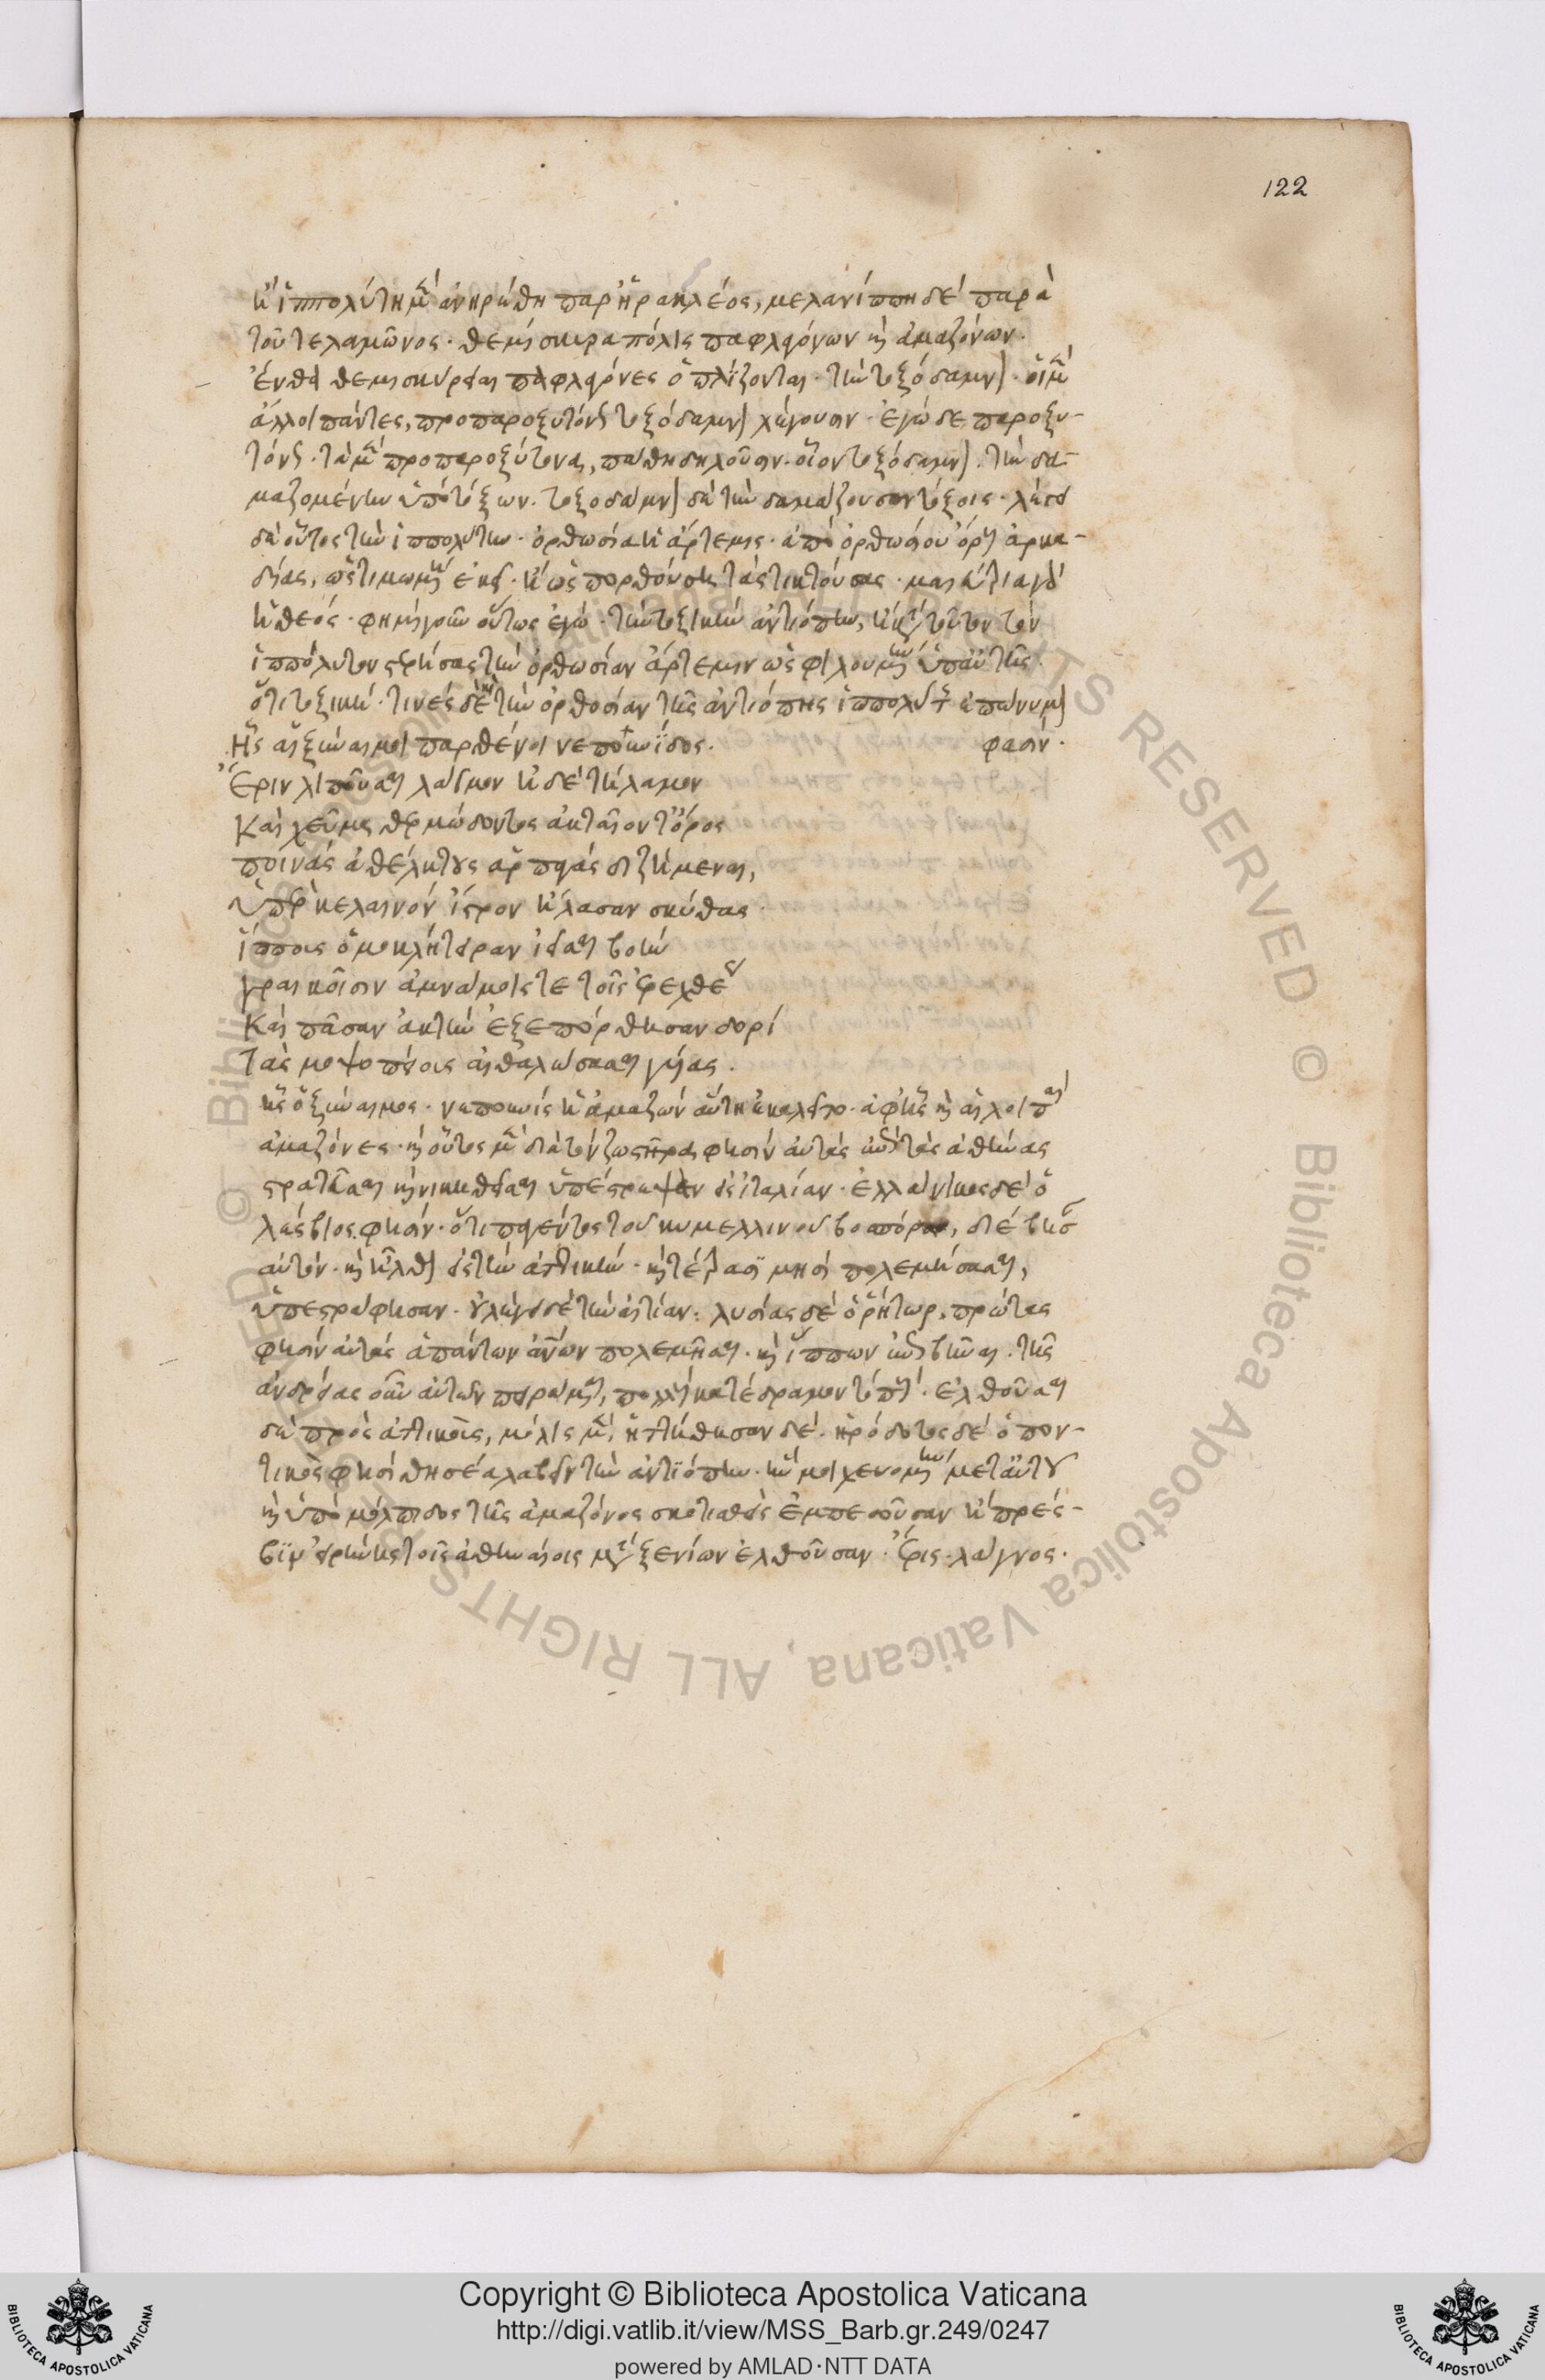 122
ἡ ἱππολύτη μὲν ἀνηρέθη παρ' ἡρακλέος, μελανίππη δὲ παρὰ
τοῦ τελαμῶνος. θεμίσκυρα πόλις παφλαγόνων καὶ ἀμαζόνων.
ἔνθα θεμισκύρειαι παφλαγόνες ὁπλίζονται. τὴν τοξόδαμνον. οἱ μὲν
ἄλλοι πάντες, προπαροξυτόνως τοξόδαμνον λέγουσιν. ἐγὼ δὲ παροξυ-
τόνως. τὰ μὲν προπαροξύτονα, πάθη δηλοῦσιν. οἷον τοξόδαμνον. τὴν δα-
μαζομένην ὑπὸ τόξων. τοξοδάμνον δὲ τὴν δαμάζουσαν τόξοις. λέγει
δὲ οὗτος τὴν ἱππολύτην. ὀρθωσία ἡ ἄρτεμις. ἀπὸ ὀρθωσίου ὄρους ἀρκα-
δίας, ὡς τιμωμένη ἐκεῖ. ἢ ὡς πορθοῦσα τὰς τικτούσας. μαιεύτια γὰρ
ἡ θεός. φημὶ γοῦν οὕτως ἐγὼ. τὴν τοξικὴν ἀντιόπην,
ἱππόλυτον στερήσας τὴν ὀρθωσίαν ἄρτεμιν ὡς φιλουμένην ὑπ' αὐτῆς.
ὅτι τοξική. τινὲς δὲ τὴν ὀρθοσίαν τῆς ἀντιόπης ἱππολύτης ἐπώνυμον
φασίν.
Ἧς αἱ ξύναιμοι παρθένοι νεπτουνίδος.
Ἔριν λιποῦσαι λάγμον ἠδὲ τήλαμον
Καὶ χεῦμα θερμώδοντος ἀκταῖόν τ' ὄρος
ποινὰς ἀθέλκτους ἁρπαγὰς διζήμεναι,
ὑπὲρ κελαινὸν ἴστρον ἤλασαν σκύθας
ἵπποις ὁμοκλήτειραν ἱεῖσαι βοὴν
γραικοῖσιν ἀμνάμοις τε τοῖς ἐρεχθέως
Καὶ πᾶσαν ἀκτὴν ἐξεπόρθησαν δορὶ
τὰς μοψοπείοις αἰθαλώσασαι γύας.
ἧς οἱ ξύναιμος. νεπτουνὶς ἡ ἀμαζὼν αὕτη ἐκαλεῖτο. ἀφ' ἧς καὶ αἱ λοιπαὶ
ἀμαζόνες. καὶ οὗτος μὲν διὰ τὸν ζωστῆρα φησὶν αὐτὰς κατὰ τὰς ἀθήνας
στρατεῦσαι καὶ νικηθείσας ὑπέστρεψαν εἰς ἰταλίαν. ἑλλάνικος δὲ ὁ
λέσβιος φησὶν. ὅτι παγέντος τοῦ κιμμελλινοῦ βοσπόρου, διέβησαν
αὐτὸν. καὶ ἦλθον εἰς τὴν ἀττικὴν. καὶ τέσσαρσι μησὶ πολεμήσασαι,
ὑπεστράφησαν. οὐ λέγει δὲ τὴν αἰτίαν. λυσίας δὲ ὁ ῥήτωρ, πρώτας
φησὶν αὐτὰς ἁπάντων ἀνθρώπων πολεμῆσαι. καὶ ἵππων ἐπιβῆναι. τῆς
ἀνδρείας οὖν αὐτῶν πειράματα, πολλοὺς κατέδραμον τόπους. ἐλθοῦσαι
δὲ πρὸς ἀττικοὺς, μόλις μὲν, ἡττήθησαν δέ. ἡρόδοτος δὲ ὁ ποντ-
τικός φησὶ θησέα λαβεῖν τὴν ἀντιόπην. ἣν μαχευομένην μετ' αὐτοῦ
καὶ ὑπὸ μολπίδος τῆς ἀμαζόνος σκοτισθεὶς ἐμπεσοῦσαν ἢ πρέσ-
βιν εἰρήνης τοῖς ἀθηναίοις μετὰ ξενίων ἐλθοῦσαν. ἔρις. λάγνος.
Copyright © Biblioteca Apostolica Vaticana
http://digi.vatlib.it/view/MSS_Barb.gr.249/0247
powered by AMLAD·NTT DATA
BIBLIOTECA APOSTOLICA VATICANA
BIBLIOTECA APOSTOLICA VATICANA